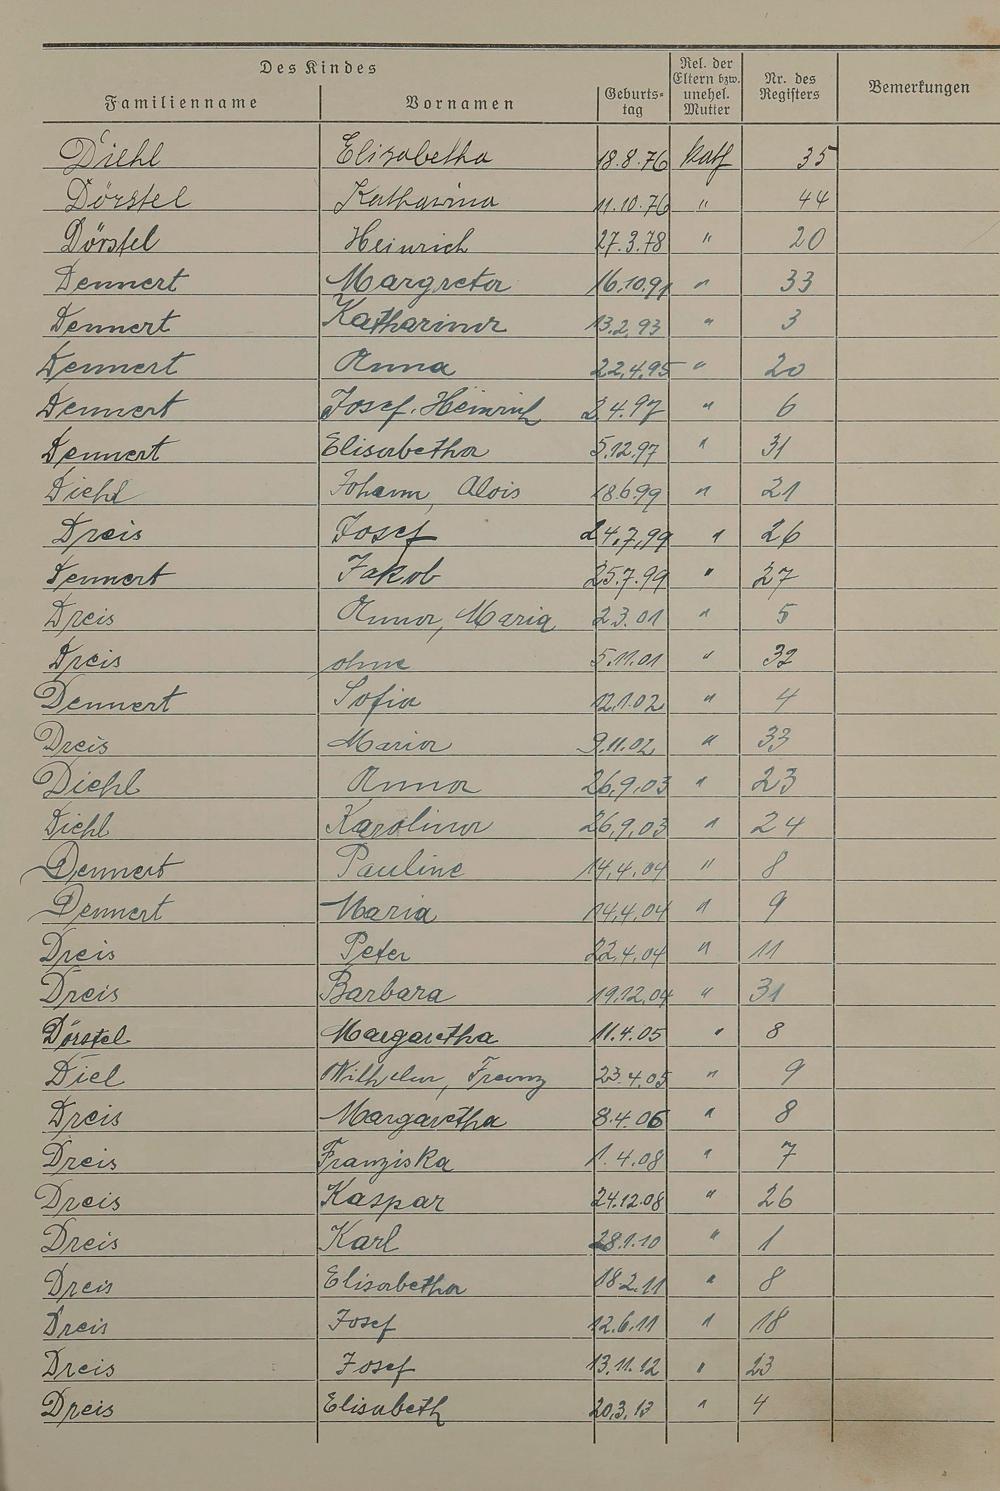 Des Kindes
Familienname Vornamen Geburts= tag Rel. der Eltern bzw. unehel. Mutter Nr. des Registers Bemerkungen
Diehl Elisabetha 18.8.76 kath 35
Dörstel Katharina 11.10.76 " 44
Dörstel Heinrich 27.3.78 " 20
Dennert Margreta 16.10.91 " 33
Dennert Katharina 13.2.93 " 3
Dennert Anna 22.4.95 " 20
Dennert Josef. Heinrich 2.4.97 " 6
Dennert Elisabetha 5.12.97 " 31
Diehl Johann, Alois 18.6.99 " 21
Dreis Josef 24.7.99 " 26
Dennert Jakob 25.7.99 " 27
Dreis Anna, Maria 2.3.01 " 5
Dreis ohne 5.11.01 " 32
Dennert Sofia 12.1.02 " 4
Dreis Maria 9.11.02 " 33
Diehl Anna 26.9.03 " 23
Diehl Karolina 26.9.03 " 24
Dennert Pauline 14.4.04 " 8
Dennert Maria 14.4.04 " 9
Dreis Peter 22.4.04 " 11
Dreis Barbara 19.12.04 " 31
Dörstel Margaretha 11.4.05 " 8
Diel Wilhelm, Franz 23.4.05 " 9
Dreis Margaretha 8.4.06 " 8
Dreis Franziska 1.4.08 " 7
Dreis Kaspar 24.12.08 " 26
Dreis Karl 28.1.10 " 1
Dreis Elisabetha 18.2.11 " 8
Dreis Josef 12.6.11 " 18
Dreis Josef 13.11.12 " 23
Dreis Elisabeth 20.3.13 " 4